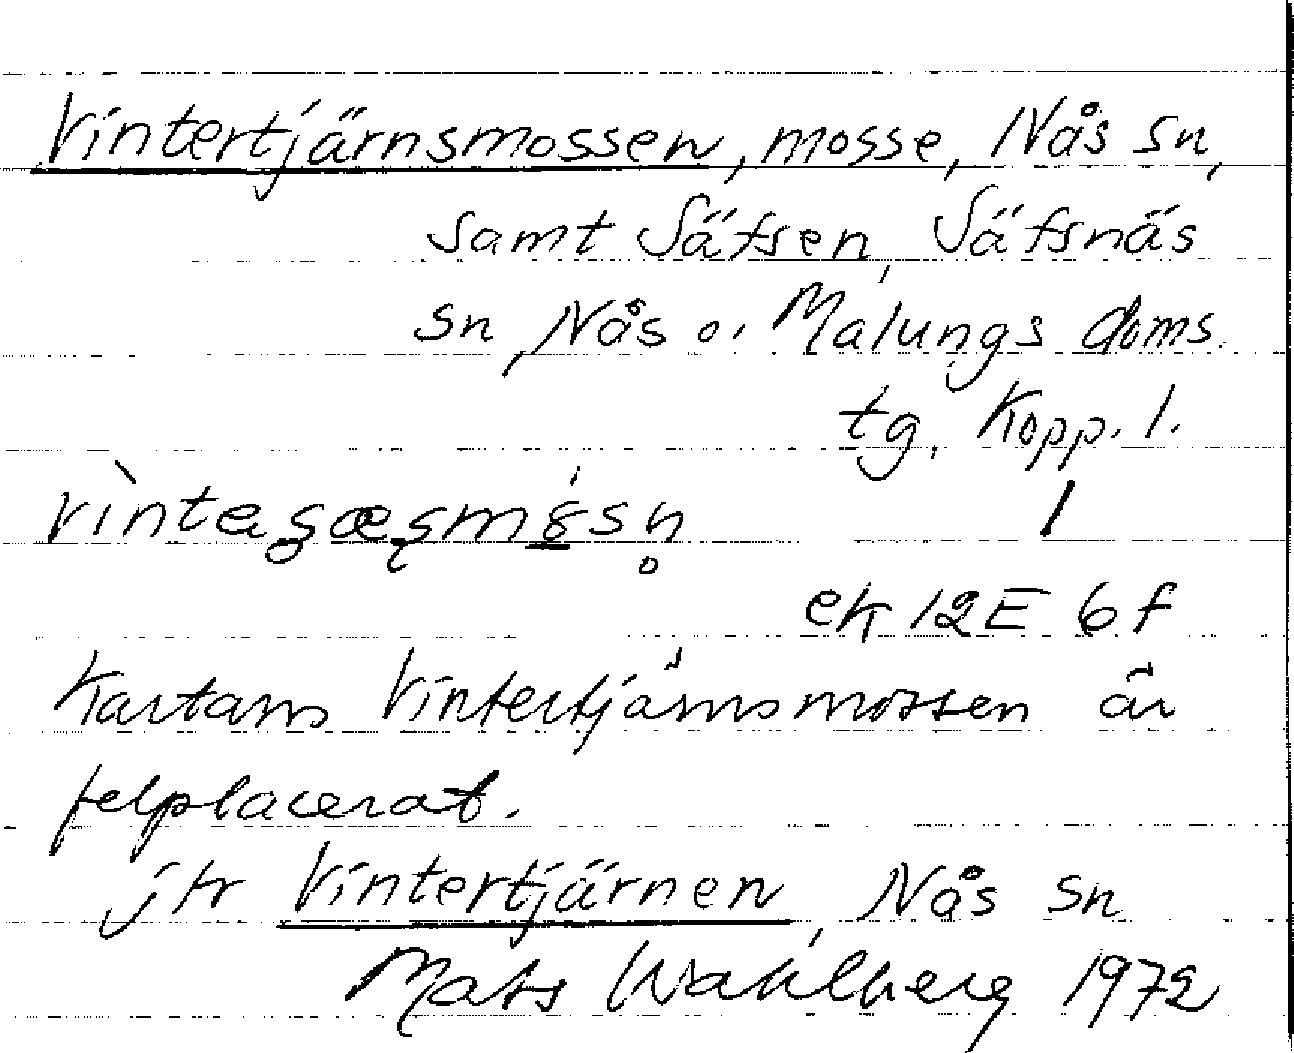 Vintertjärnsmossen, mosse, Nås sn,
samt Säfsen, Säfsnäs
sn, Nås o. Malungs doms.
tg, Kopp. l.
1
ek 12E 6f
Kartans Vintertjärnsmossen är
felplacerat.
jfr Vintertjärnen, Nås sn
Mats Wahlberg 1972